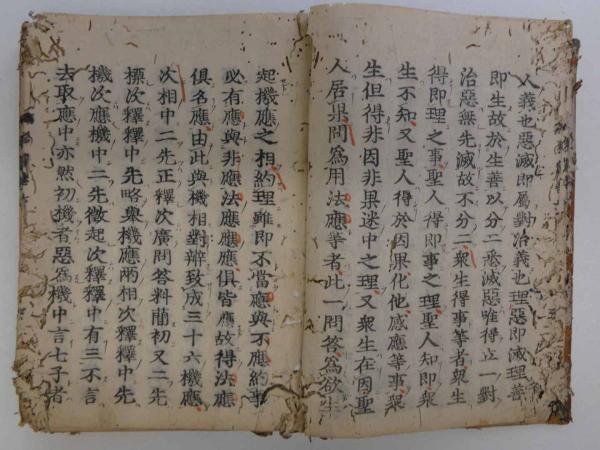 人義也惡滅即屬對治義也理惡即滅理善
即生故於生善以分二悉滅惡唯得止一對
治惡無先滅故不分二衆生得事等者衆生
得即理之事聖人得即事之理聖人知即衆
生不知又聖人得於因果化他感應等事衆
生但得非因非果迷中之理又衆生在因聖
人居果問爲用法應等者此一問答爲欲生
起機應之相約理雖即不當應與不應約事
必有應與非應法應應應俱皆應故得法應
俱名應由此與機相對辯致成三十六機應
次相中二先正釋次廣問答料蕳初又二先
標次釋釋中先略舉機應兩相次釋釋中先
機次應機中二先徴起次釋釋中有三不言
去取應中亦然初機者惡爲機中言七子者